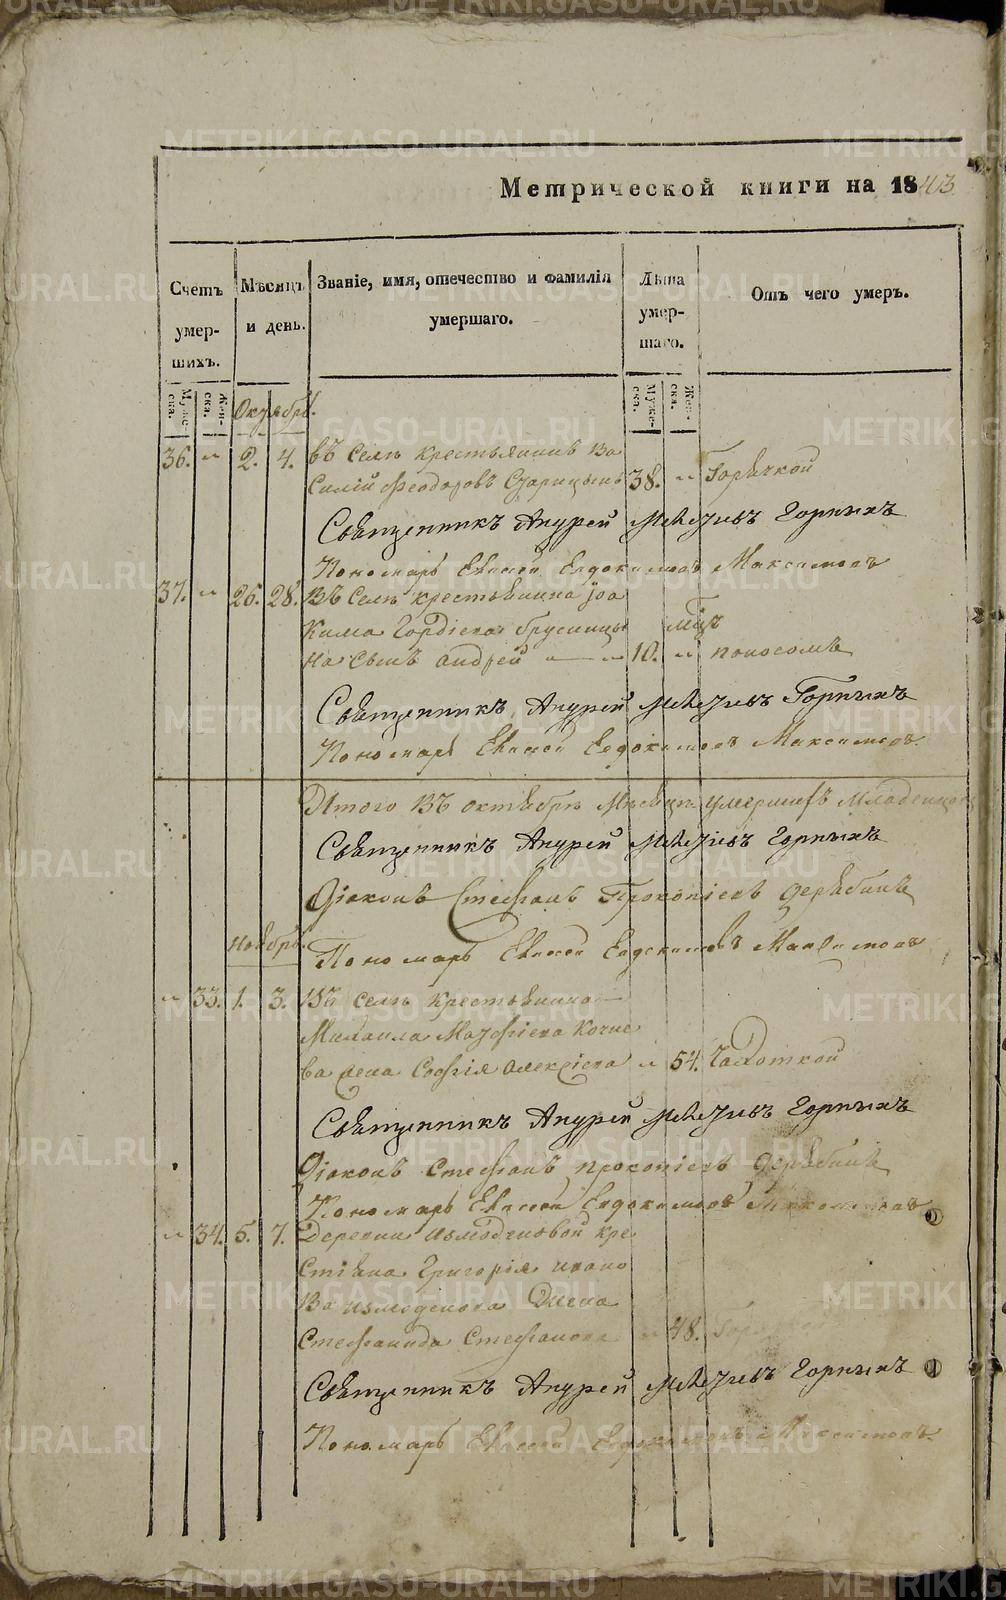 Метрической книги на 1843
Счетъ умер-шихъ.
Мѣсяцъ и день.
Званіе, имя, отечество и фамилія умершаго.
Лѣта умер-шаго.
Отъ чего умеръ.
Муже-ска.
Жен-ска.
Муже-ска.
Жен-ска.
Октябрь.
36. „ 2. 4. въ Селѣ крестьянинъ Ва
силій Феодоровъ Старицынъ 38. „ Горячкой
Священникъ Андрей Горныхъ
Пономарь Евдокимовъ Максимовъ
37. „ 26. 28. Въ Селѣ крестьянина Іоа
кима Гордіева Брусницы мѣц
на сынъ Андрей „ — „ 10. „ поносомъ
Священникъ Андрей Горныхъ
Пономарь Евдокимовъ Максимовъ
Итого въ октябрѣ мѣсяцѣ умершихъ
Священникъ Андрей Горныхъ
Діаконъ Стефанъ Прокопіевъ Дерябинъ
Ноябрь
Пономарь Евдокимовъ Максимовъ
„ 33. 1. 3. Въ селѣ Крестьянина —
Михаила Кочне
ва жена Софія Алексіева „ 54. Чахоткой
Священникъ Андрей Горныхъ
Діаконъ Стефанъ Прокопіевъ Дерябинъ
Пономарь Евдокимовъ Максимовъ
„ 34. 5. 7. Деревни Измоденовой кре
стьяна Григорія Ивано
ва Измоденова Жена
Стефанида Стефанова „ 48.
Священникъ Андрей Горныхъ
Пономарь Евдокимовъ Максимовъ
METRIKI.GASO-URAL.RU